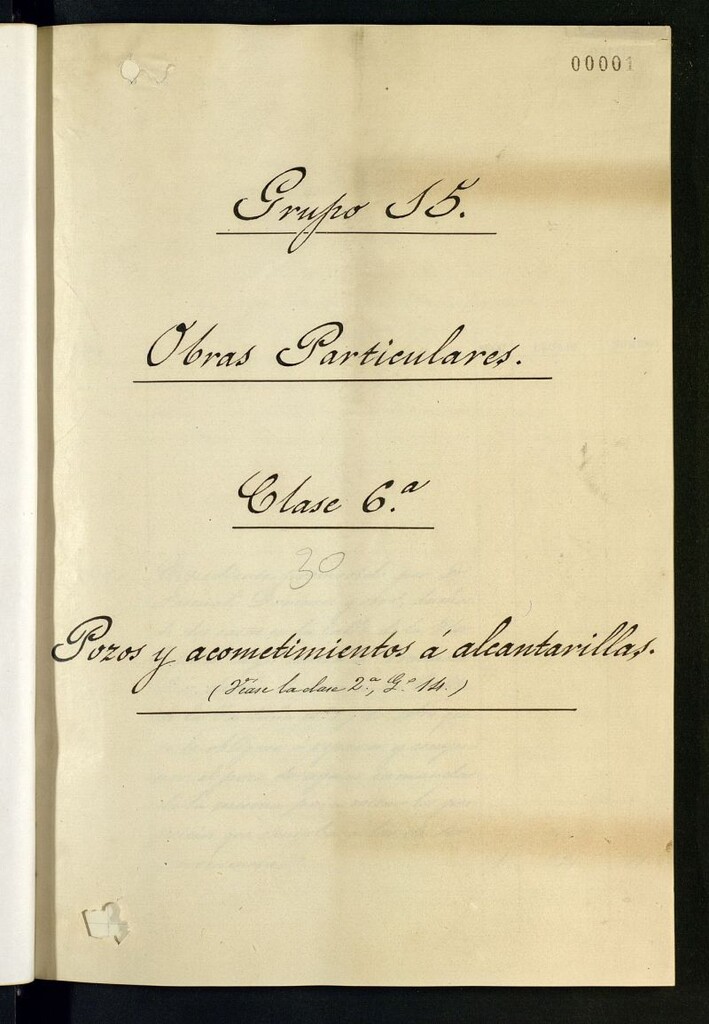 00001
Grupo 15.
Obras Particulares.
Clase 6.ª
30
Pozos y acometimientos á alcantarillas.
(Véase la clase 2.ª, G.º 14.)